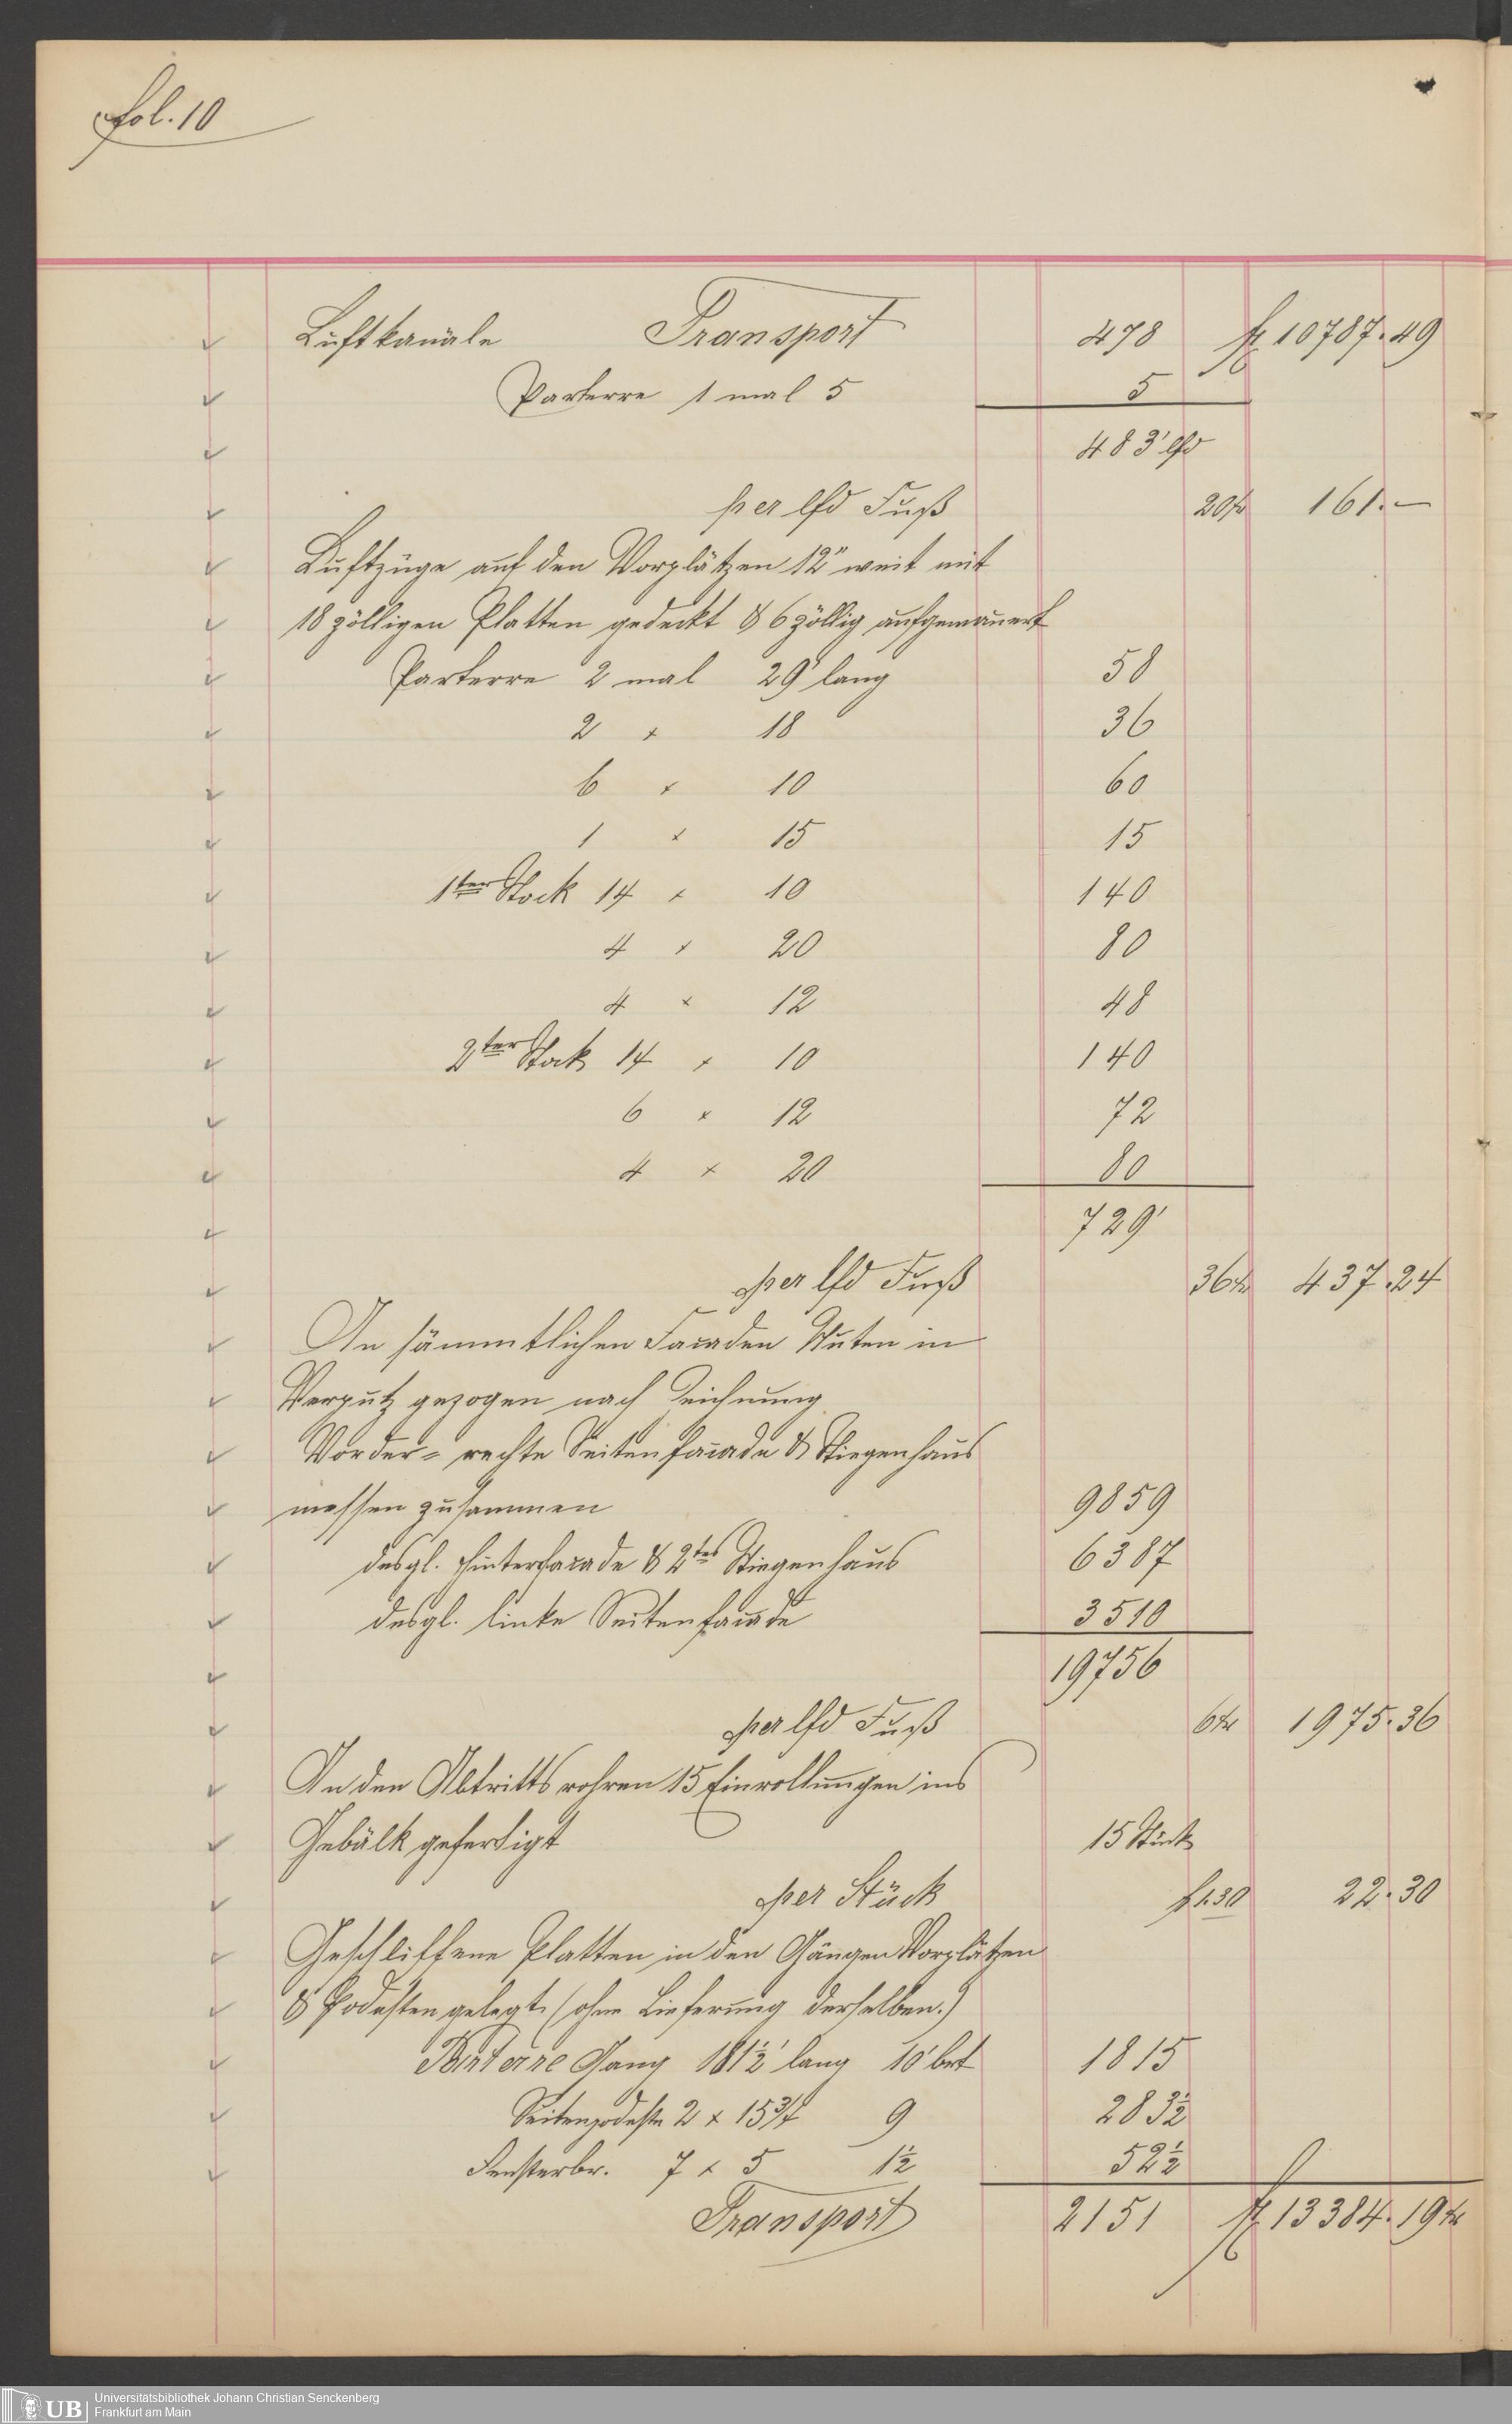 fol. 10
Luftkanäle Transport 478 fl 10787. 49
Parterre 1 mal 5 5
483' lfd
per lfd Fuß 20 kr 161. —
Luftzüge auf den Vorplätzen 12" weit mit
18 zölligen Platten gedeckt & 6 zöllig aufgemauert
Parterre 2 mal 29' lang 58
2 " 18 36
6 " 10 60
1 " 15 15
1ter Stock 14 " 10 140
4 " 20 80
4 " 12 48
2ter Stock 14 " 10 140
6 " 12 72
4 " 20 80
729'
per lfd Fuß 36 kr 437. 24
An sämmtlichen Facaden Nuten in
Verputz gezogen nach Zeichnung
Vorder- rechte Seitenfacade & Stiegenhaus
messen zusammen 9859
desgl. Hinterfacade & 2tes Stiegenhaus 6387
desgl. linke Seitenfacade 3510
19756
per lfd Fuß 6 kr 1975. 36
An den Abtrittsrohren 15 Einrollungen ins
Gebälk gefertigt 15 Stück
per Stück f 1.30 22. 30
Geschliffene Platten in den Gängen Vorplätzen
& Podesten gelegt (ohne Lieferung derselben.)
Parterre Gang 181½' lang 10' brt 1815
Seitenpodeste 2 " 15¾ 9 283½
Fensterbr. 7 " 5 1½ 52½
Transport 2151 fl 13384. 19 kr
Universitätsbibliothek Johann Christian Senckenberg
UB Frankfurt am Main